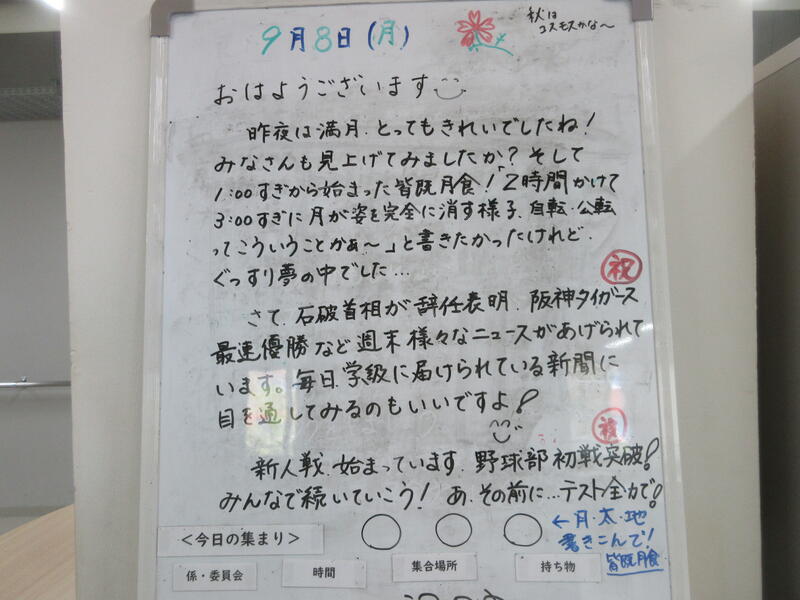 9月8日(月)
秋は
コスモスかな～
おはようございます
昨夜は満月、とってもきれいでしたね!
みなさんも見上げてみましたか?そして
1:00すぎから始まった皆既月食!「2時間かけて
3:00すぎに月が姿を完全に消す様子、自転・公転
ってこういうことかぁ～」と書きたかったけれど、
ぐっすり夢の中でした…
祝
さて、石破首相が辞任表明、阪神タイガース
最速優勝など週末様々なニュースがあげられて
います。毎日、学級に届けられている新聞に
目を通してみるのもいいですよ!
祝
新人戦、始まっています、野球部初戦突破!
みんなで続いていこう! あ、その前に…テスト全力で!
<今日の集まり>
←月・太・地
書きこんで!
皆既月食
係・委員会 時間 集合場所 持ち物